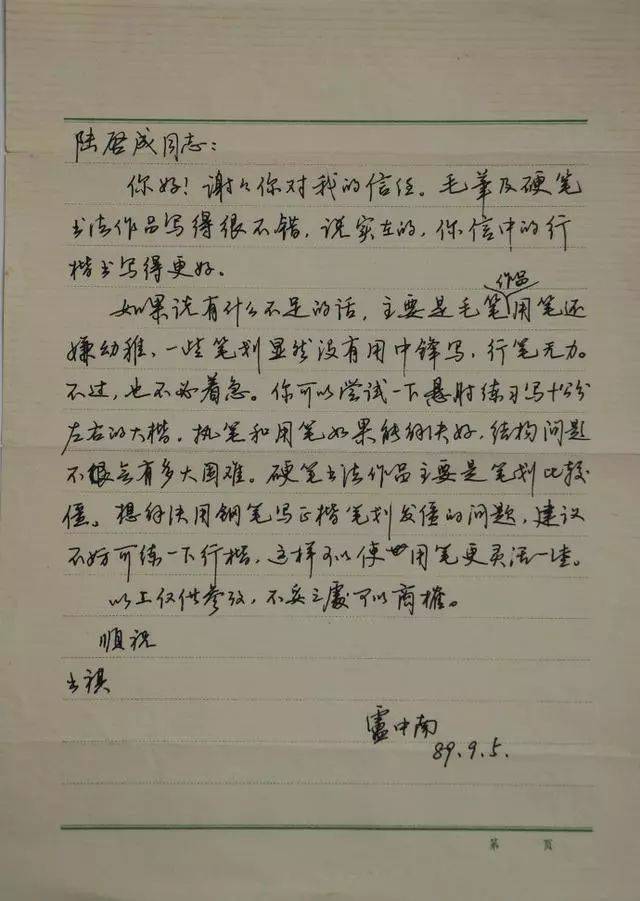 陆啓成同志：
你好！谢々你对我的信任。毛筆及硬笔
书法作品写得很不错，说实在的，你信中的行
楷书写得更好。
如果说有什么不足的话，主要是毛笔作品用笔还
嫌幼稚，一些笔划显然没有用中锋写，行笔无力。
不过，也不必着急。你可以尝试一下悬肘练习写十公分
左右的大楷。执笔和用笔如果能解决好，结构问题
不会有多大困难。硬笔书法作品主要是笔划比较
僵。想解决用钢笔写正楷笔划发僵的问题，建议
不妨可练一下行楷，这样可以使用笔更灵活一些。
以上仅供参攷，不妥之處可以商榷。
顺祝
书祺
盧中南
89.9.5.
第 页